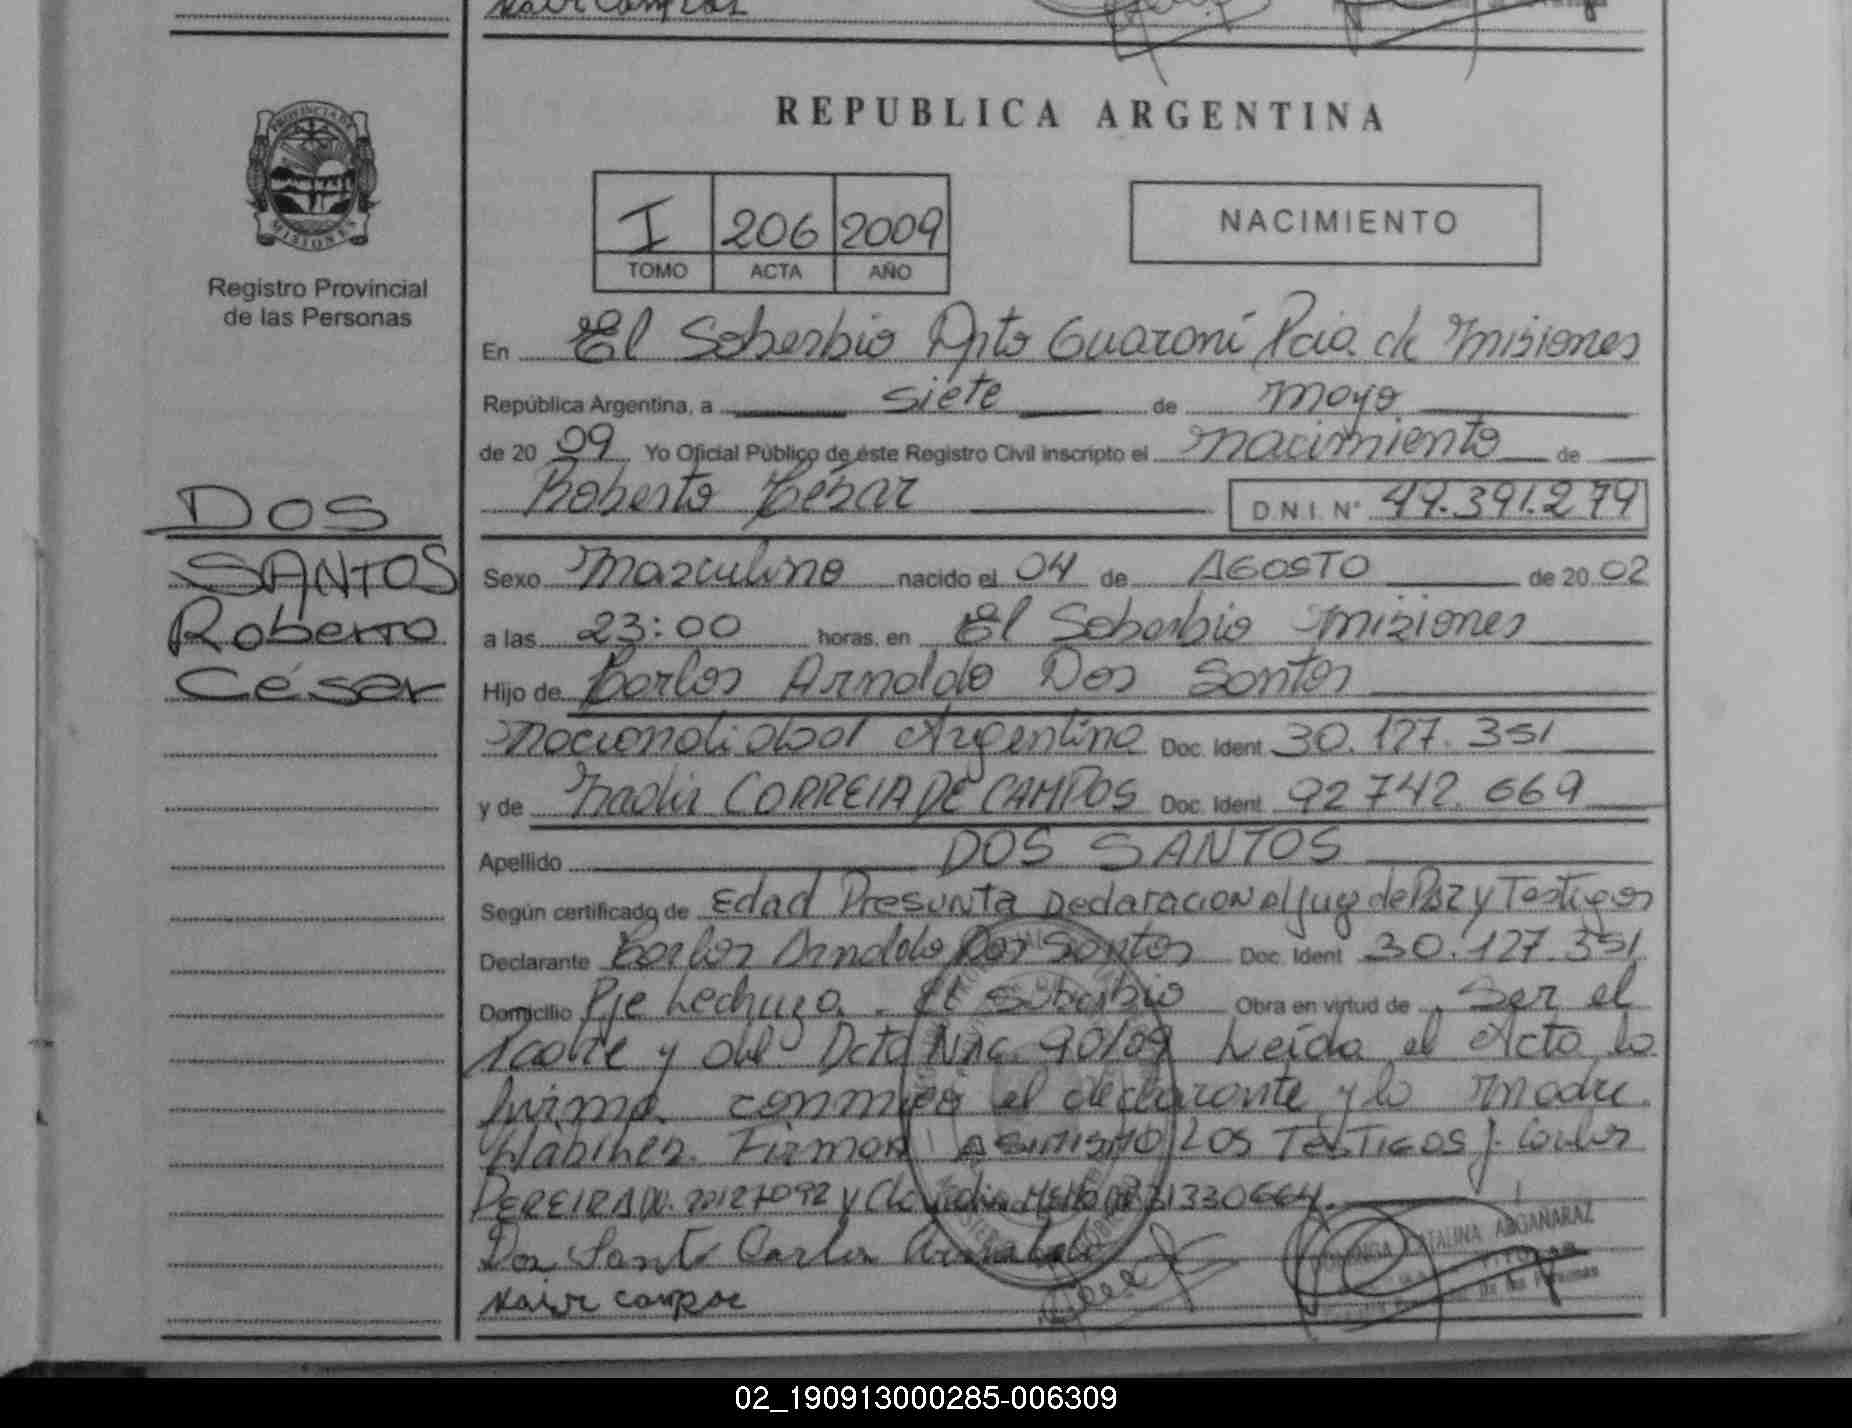 REPUBLICA ARGENTINA
PROVINCIA DE
MISIONES
Registro Provincial
de las Personas
I 206 2009
TOMO ACTA AÑO
NACIMIENTO
En El Soberbio Dpto Guaraní Pcia. de Misiones
República Argentina, a siete de mayo
de 20 09 Yo Oficial Público de éste Registro Civil inscripto el nacimiento de
Roberto César D.N.I. N° 49.391.279
DOS
SANTOS
Roberto
César
Sexo Masculino nacido el 04 de AGOSTO de 20 02
a las 23:00 horas, en El Soberbio Misiones
Hijo de Carlos Arnoldo Dos Santos
nacionalidad Argentina Doc. Ident. 30.127.351
y de Nadir CORREIA DE CAMPOS Doc. Ident. 92 742.669
Apellido DOS SANTOS
Según certificado de Edad Presunta Declaracion al Juez de Paz y Testigos
Declarante Carlos Arnoldo Dos Santos Doc. Ident 30.127.351
Domicilio Pje Lechuza. El Soberbio Obra en virtud de Ser el
Padre y del Dcto Nac. 90/09 Leída el Acta la
firma conmigo el declarante y la madre.
Firman ASIMISMO LOS TESTIGOS Carlos
PEREIRA 20127092 y Claudia 31330664.
Dos Santo Carlos Arnaldo
Nair campos
CATALINA ARGAÑARAZ
de las Personas
02_190913000285-006309